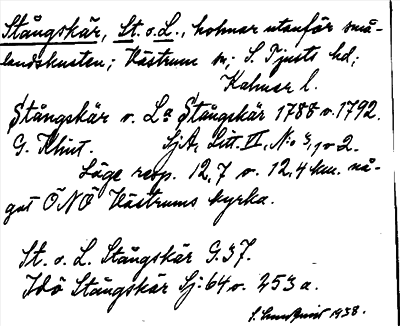 Stångskär, St. o. L., holmar utanför små-
landskusten; Västrum sn; S. Tjusts hd;
Kalmar l.
Stångskär o. La Stångskär 1788 o. 1792.
G. Klint. SjA, Litt. II, No 3, 1 o 2.
Läge resp. 12,7 o. 12,4 km. nå-
got ÖNÖ Västrums kyrka.
St. o. L. Stångskär G. 37.
Idö Stångskär Sj. 64 o. 253 a.
1938.